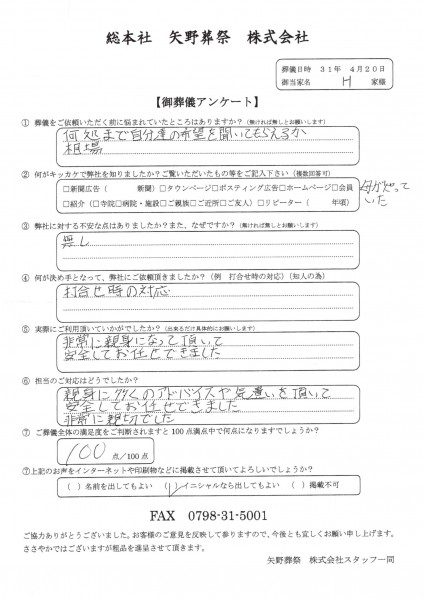 総本社 矢野葬祭 株式会社
葬儀日時 31年 4月20日
御当家名 H 家様
【御葬儀アンケート】
① 葬儀をご依頼いただく前に悩まれていたところはありますか？(無ければ無しとお願いします)
何処まで自分達の希望を聞いてもらえるか
相場
② 何がキッカケで弊社を知りましたか？ご覧いただいたもの等をご記入下さい(複数回答可)
□新聞広告( 新聞)□タウンページ□ポスティング広告□ホームページ□会員
□紹介(□寺院□病院・施設□ご親族□ご近所□ご友人)□リピーター( 年頃)
母が知って
いた
③ 弊社に対する不安な点はありましたか？また、なぜですか？(無ければ無しとお願いします)
無し
④ 何が決め手となって、弊社にご依頼頂きましたか？(例 打合せ時の対応)(知人の為)
打合せ時の対応
⑤ 実際にご利用頂いていかがでしたか？(出来るだけ具体的にお願いします)
非常に親身になって頂いて
安全してお任せできました
⑥ 担当のご対応はどうでしたか？
親身に多くのアドバイスや気遣いを頂いて
安全してお任せできました
非常に親切でした
⑦ ご葬儀全体の満足度をご判断されますと100点満点中で何点になりますでしょうか？
100 点/100点
⑦上記のお声をインターネットや印刷物などに掲載させて頂いてよろしいでしょうか？
( )名前を出してもよい (/)イニシャルなら出してもよい ( )掲載不可
FAX 0798-31-5001
ご協力ありがとうございました。お客様のご意見を反映して参りますので、今後とも宜しくお願い申し上げます。
ささやかではございますが粗品を進呈させて頂きます。
矢野葬祭 株式会社スタッフ一同